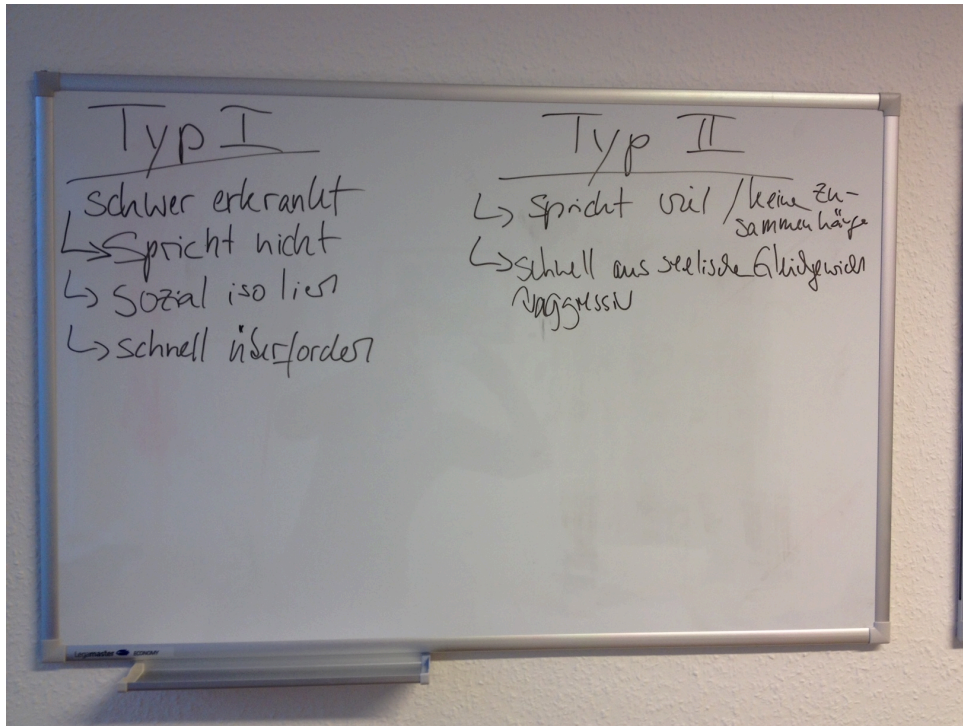 Typ I
schwer erkrankt
↳ Spricht nicht
↳ sozial isoliert
↳ schnell überfordert
Typ II
↳ spricht viel / keine Zu-
sammenhänge
↳ schnell aus seelische Gleichgewicht
↳ aggressiv
Legamaster ECONOMY